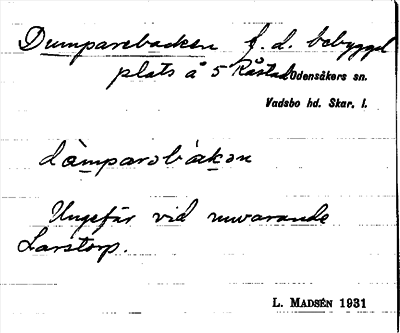 Dumparebacken f. d. bebyggd
plats å 5 Råstad Odensåkers sn.
Vadsbo hd. Skar. l.
dàmparəbákən
Ungefär vid nuvarande
Larstorp.
L. MADSÉN 1931